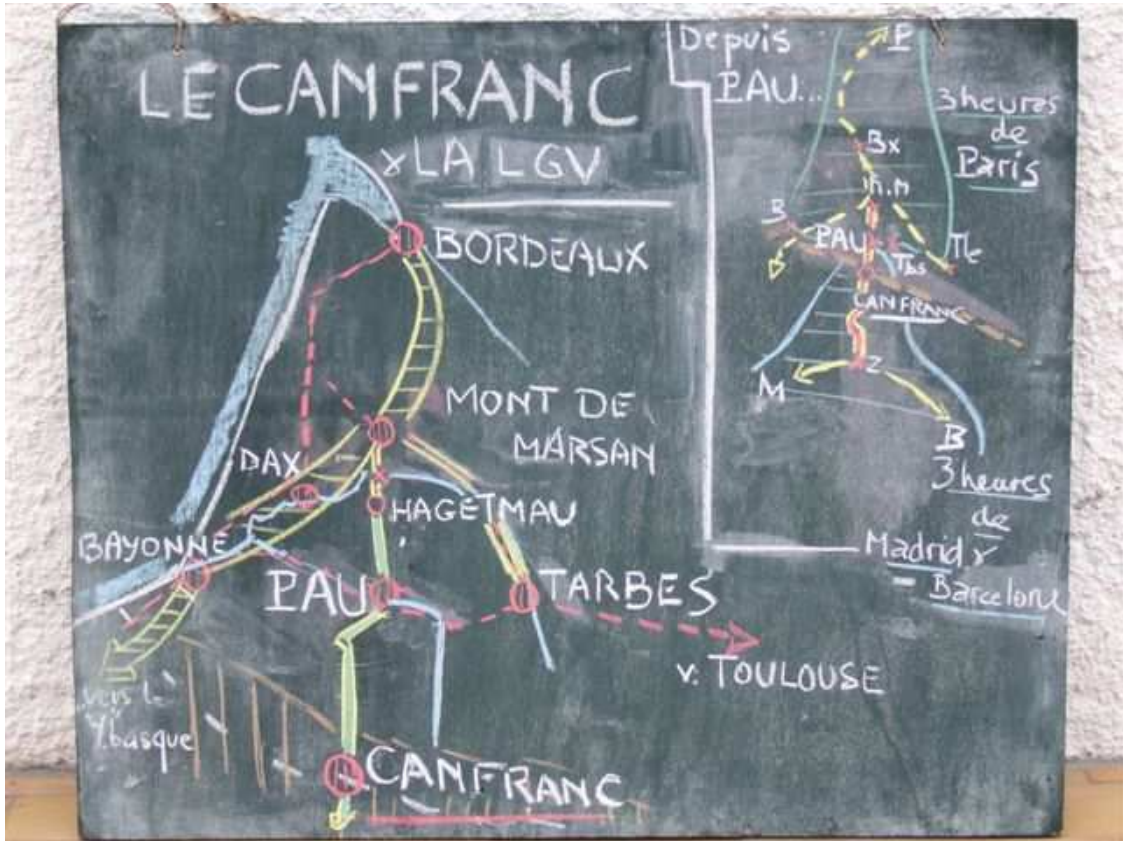 LE CANFRANC
& LA LGV
BORDEAUX
MONT DE
MARSAN
DAX
HAGETMAU
BAYONNE
PAU
TARBES
v. TOULOUSE
vers le
basque
CANFRANC
Depuis
PAU...
P
3 heures
de
Paris
Bx
B
PAU
Tbs
Tle
CANFRANC
Z
M
B
3 heures
de
Madrid &
Barcelone